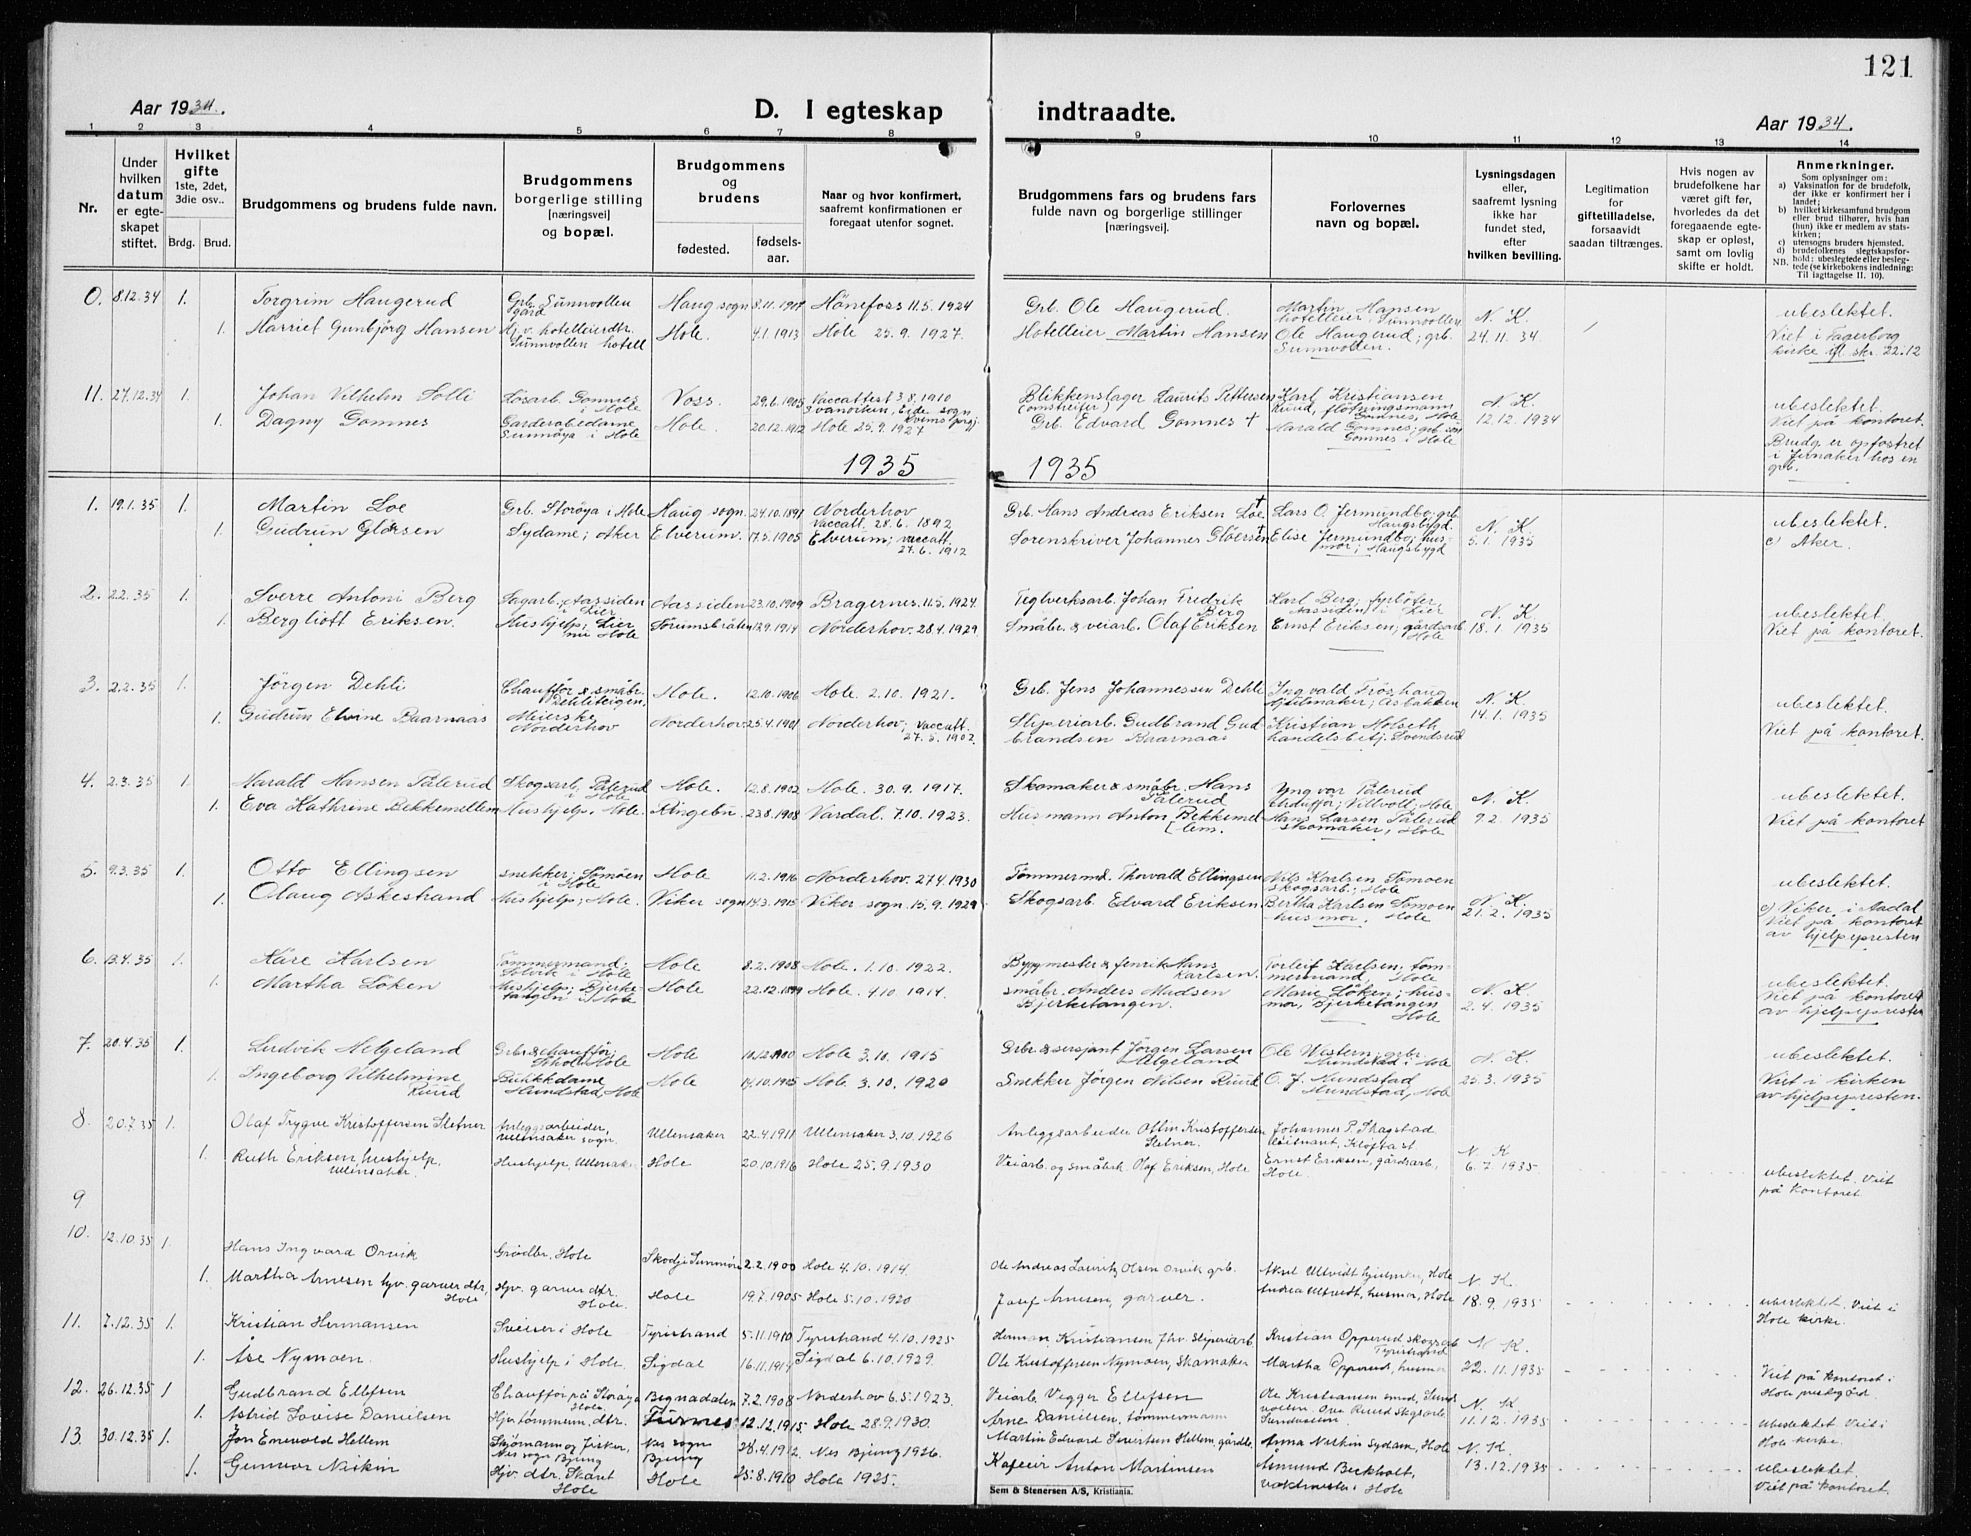 121
Aar 1934.
D. I egteskap indtraadte.
Aar 1934.
1 2 3 4 5 6 7 8 9 10 11 12 13 14
Nr.
Under hvilken datum er egteskapet stiftet.
Hvilket gifte 1ste, 2det, 3die osv..
Brdg. Brud.
Brudgommens og brudens fulde navn.
Brudgommens borgerlige stilling [næringsvei] og bopæl.
Brudgommens og brudens
fødested. fødselsaar.
Naar og hvor konfirmert, saafremt konfirmationen er foregaat utenfor sognet.
Brudgommens fars og brudens fars fulde navn og borgerlige stillinger [næringsvei].
Forlovernes navn og bopæl.
Lysningsdagen eller, saafremt lysning ikke har fundet sted, efter hvilken bevilling.
Legitimation for giftetilladelse, forsaavidt saadan tiltrænges.
Hvis nogen av brudefolkene har været gift før, hvorledes da det foregaaende egteskap er opløst, samt om lovlig skifte er holdt.
Anmerkninger.
Som oplysninger om:
a) Vaksination for de brudefolk, der ikke er konfirmert her i landet;
b) hvilket kirkesamfund brudgom eller brud tilhører, hvis han (hun) ikke er medlem av statskirken;
c) utensogns bruders hjemsted.
d) brudefolkenes slegtskapsforhold; ubeslegtede eller beslegtede (se kirkebokens indledning: Til iagttagelse II. 10).
NB.
0. 8.12.34 1. Torgrim Haugerud Grb. Sunnvollen gård Haug sogn 8.11.1907 Hønefoss 11.5.1924 Grb. Ole Haugerud Martin Hansen hotelleier, Sunnvollen N. K. ubeslektet.
1. Harriet Gunbjörg Hansen Hj.v. hotelleierdtr. Sunnvollen hotell Hole. 4.1.1913 Hole 25.9.1927. Hotelleier Martin Hansen Ole Haugerud; grb. Sunnvollen. 24.11.34. Viet i Fagerborg kirke ifl. skr. 22.12
11. 27.12.34 1. Johan Vilhelm Solli Løsarb. Gomnes i Hole Voss. 29.6.1905 Vaccattest 3.8.1910 Blikkenslager Laurits Pettersen (omstreifer) Karl Kristiansen Ruud, fløtningsmann Gomnes, Hole N. K. ubeslektet.
1. Dagny Gomnes Garderobedame Sunnøya i Hole Hole. 20.12.1912 Hole 25.9.1927 Grb. Edvard Gomnes + Harald Gomnes; grb.søn Gomnes i Hole 12.12.1934 Viet på kontoret. Brudg. er opfostret i Jernaker hos en grb.
1935 1935
1. 19.1.35 1. Martin Loe Grb. Storøya i Hole Haug sogn. 24.10.1891 Norderhov Vaccatt. 28.6.1892 Grb. Hans Andreas Eriksen Loe + Lars O. Jermundbo, grb. Haugsbygd. N. K. ubeslektet.
1. Gudrun Gløersen Sydame; Aker Elverum. 17.5.1905 Elverum; vaccatt. 27.6.1912 Sorenskriver Johannes Gløersen + Elise Jermundbo; husmor; Haugsbygd 5.1.1935 c) Aker.
2. 2.2.35 1. Sverre Antoni Berg Sagarb. Aassiden i Lier Aassiden 23.10.1909 Bragernes. 11.5.1924. Teglverksarb. Johan Fredrik Berg Karl Berg; fyrbøter, Aassiden i Lier N. K. ubeslektet.
1. Bergliott Eriksen. Hushjelp; Lier nu Hole Sörumsbråten 12.9.1914 Norderhov. 28.4.1929. Småbr. & veiarb. Olaf Eriksen Ernst Eriksen; gårdsarb. Hole 18.1.1935 Viet på kontoret.
3. 2.2.35 1. Jörgen Dehli Chauffør & småbr. Dehliteigen, Hole. 12.10.1906 Hole. 2.10.1921. Grb. Jens Johannessen Dehli Ingvald Fröshaug hjulmaker; Asbakken N. K. ubeslektet.
1. Gudrun Elvine Baarnaas Meierske Norderhov Norderhov 25.4.1901 Norderhov; vaccatt. 27.5.1902. Slyperiarb. Gudbrand Gudbrandsen Baarnaas Kristian Holseth handelsbetj. Svendsrud 14.1.1935 Viet på kontoret.
4. 2.3.35 1. Harald Hansen Pålerud Skogsarb. Pålerud i Hole Hole. 12.8.1902 Hole. 30.9.1917. Skomaker & småbr. Hans Pålerud Yngvar Pålerud chauffør; Viltvoll; Hole N. K. ubeslektet.
1. Eva Kathrine Bekkemellem Hushjelp. Hole. Ringebu. 23.8.1908 Vardal. 7.10.1923. Husmann Anton Bekkemellem. Hans Larsen Pålerud skomaker, Hole 9.2.1935 Viet på kontoret
5. 9.3.35 1. Otto Ellingsen snekker; Tomøen i Hole Hole 11.2.1916 Norderhov. 27.4.1930 Tömmermd. Thorvald Ellingsen Nils Karlsen Tomoen skogsarb.; Hole ubeslektet.
1. Olaug Askestrand Hushjelp; Hole. Viker sogn 14.3.1915 Viker sogn. 15.9.1929 Skogsarb. Edvard Eriksen Bertha Karlsen Tomoen husmor. Hole N. K. 21.2.1935 c) Viker i Aadal Viet på kontoret av hjelpepresten
6. 13.4.35 1. Kåre Karlsen Tømmermand; Solvik i Hole Hole 8.2.1908 Hole. 1.10.1922. Byggmester & fenrik Hans Karlsen. Torleif Karlsen; tømmermand, Hole ubeslektet.
1. Martha Löken Hushjelp; Bjerketangen i Hole Hole 22.12.1899 Hole. 4.10.1914. småbr. Anders Madsen Bjerketangen. Marie Löken; husmor, Bjerketangen Hole N. K. 2.4.1935 Viet på kontoret av hjelpepresten
7. 20.4.35 1. Ludvik Helgeland Grbr. & chauffør; Hole Hole 10.12.1900 Hole 3.10.1915 Grbr. & sersjant Jörgen Larsen Helgeland Ole Wistern, grbr. Hundstad i Hole N. K. ubeslektet.
1. Ingeborg Vilhelmine Ruud Butikkdame Hundstad, Hole Hole 14.10.1905 Hole 3.10.1920 Snekker Jörgen Nilsen Ruud O. J. Hundstad Hundstad, Hole 25.3.1935 Viet i kirken av hjelpepresten.
8. 20.7.35 1. Olaf Trygve Kristoffersen Sletner Anleggsarbeider, Ullensaker sogn. Ullensaker 22.4.1911 Ullensaker 3.10.1926 Anleggsarbeider Ottin Kristoffersen Sletner Johannes P. Skagstad løitnant, Kløfta st.
1. Ruth Eriksen, hushjelp, Ullensaker. Hushjelp, Ullensaker Hole 20.10.1916 Hole 25.9.1930 Veiarb. og småbrk. Olaf Eriksen, Hole Ernst Eriksen, gårdsarb., Hole. N. K 6.7.1935 ubeslektet. Viet på kontoret.
9
10. 12.10.35 1. Hans Ingvard Orvik Grødbr. Hole Skodje Sunnmöre 2.2.1900 Hole 4.10.1914. Ole Andreas Lauritz Olsen Orvik grb. Aksel Ultvedt hjulmaker, Hole
1. Martha Arnesen hjv. garver dtr. Hole Hjv. garver dtr. Hole. Hole 19.7.1905 Hole 5.10.1920 Josef Arnesen, garver. Andrea Ultvedt, husmor, Hole N. K. 18.9.1935 ubeslektet. Viet i Hole kirke.
11. 7.12.35 1. Kristian Hermansen Sveiser i Hole Tyristrand 5.11.1910 Tyristrand 4.10.1925 Herman Kristiansen fhv. slyperiarb. Kristian Opperud skogsarb. Tyristrand N. K.
1. Åse Nymoen. Hushjelp i Hole. Sigdal 16.11.1914 Sigdal 6.10.1929. Ole Kristoffersen Nymoen, Skomaker Martha Opperud, husmor 22.11.1935 Viet på kontoret i Hole prestegård.
12. 26.12.35 1 Gudbrand Ellefsen Chauffør på Storøya Hole. Begnadalen 7.2.1908 Norderhov 6.5.1923. Veiarb. Vegger Ellefsen Ole Kristiansen smed, Sundvollen. Ove Ruud skogsarb. N. K.
1. Astrid Lovise Danielsen Hjv. tømmerm. dtr. Furnes 12.12.1915 Hole 28.9.1930. Arne Danielsen, tømmermann 11.12.1935 ubeslektet Viet i Hole kirke.
13. 30.12.35 1. Jon Enevold Hellem Sjømann og fisker, Nes sogn Bjung Nes sogn Bjung 28.4.1912 Nes Bjung 1926. Martin Edvard Sivertsen Hellem, gårdbr. Anna Niskin Sydame, Hole N. K.
1. Gunvor Niskin Hjv. dtr. Skaret Hole Hole 25.8.1910 Hole 1925. Kafeeier Anton Martinsen Åsmund Berkholt, vaktmester i Hole 13.12.1935 ubeslektet. Viet på kontoret.
Sem & Stenersen A/S, Kristiania.